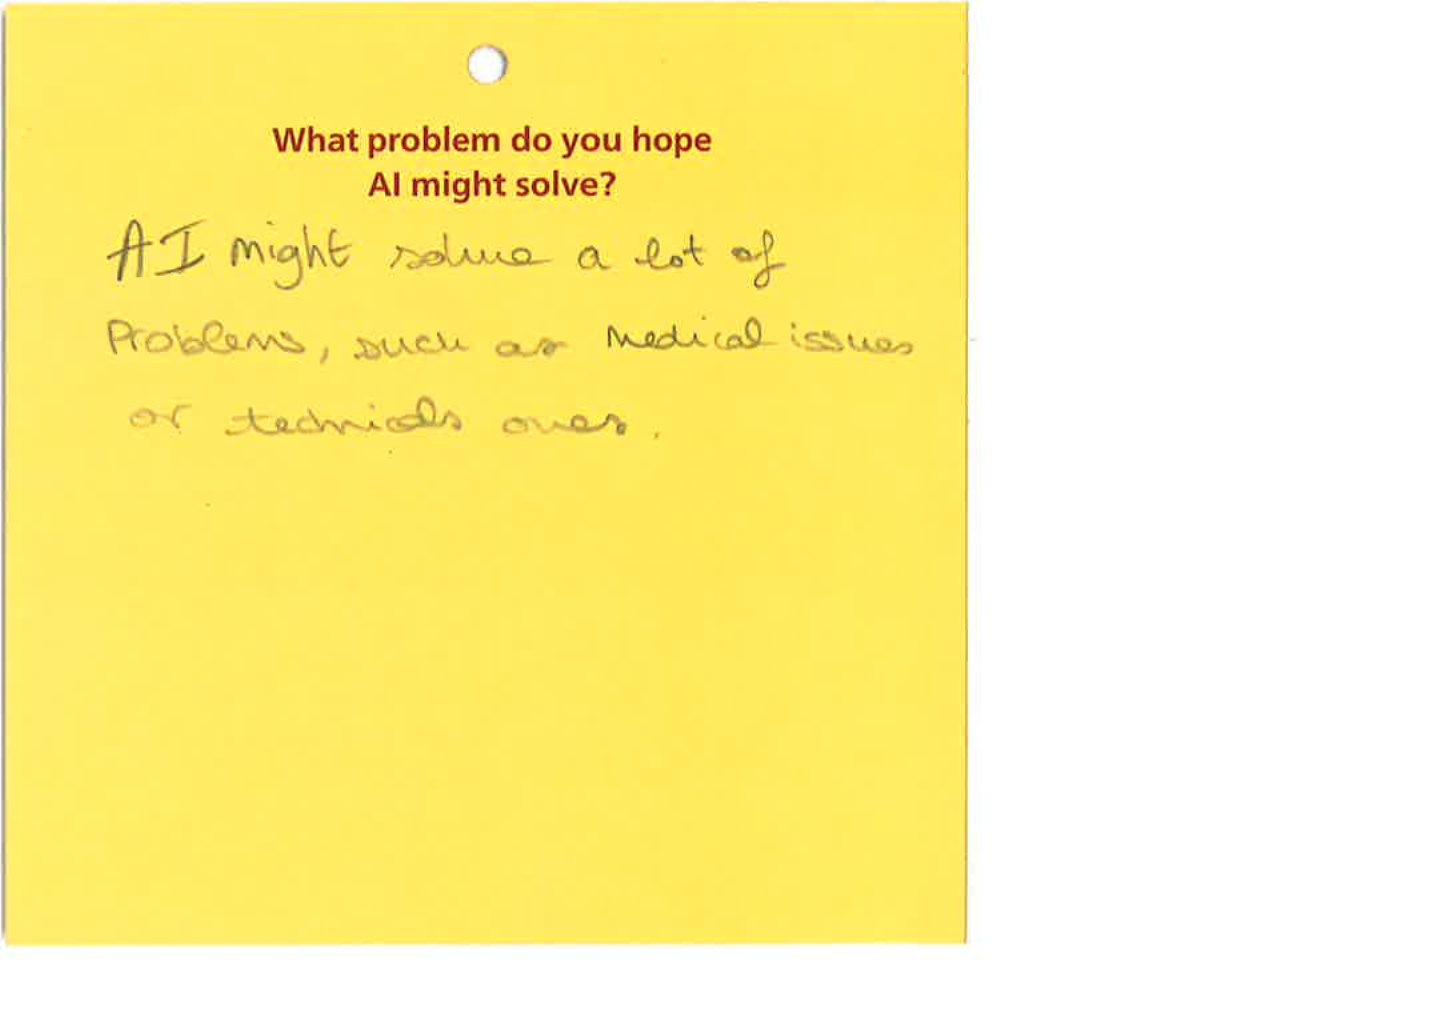 What problem do you hope
AI might solve?
AI might solve a lot of
Problems, such as Medical issues
or technicals ones.